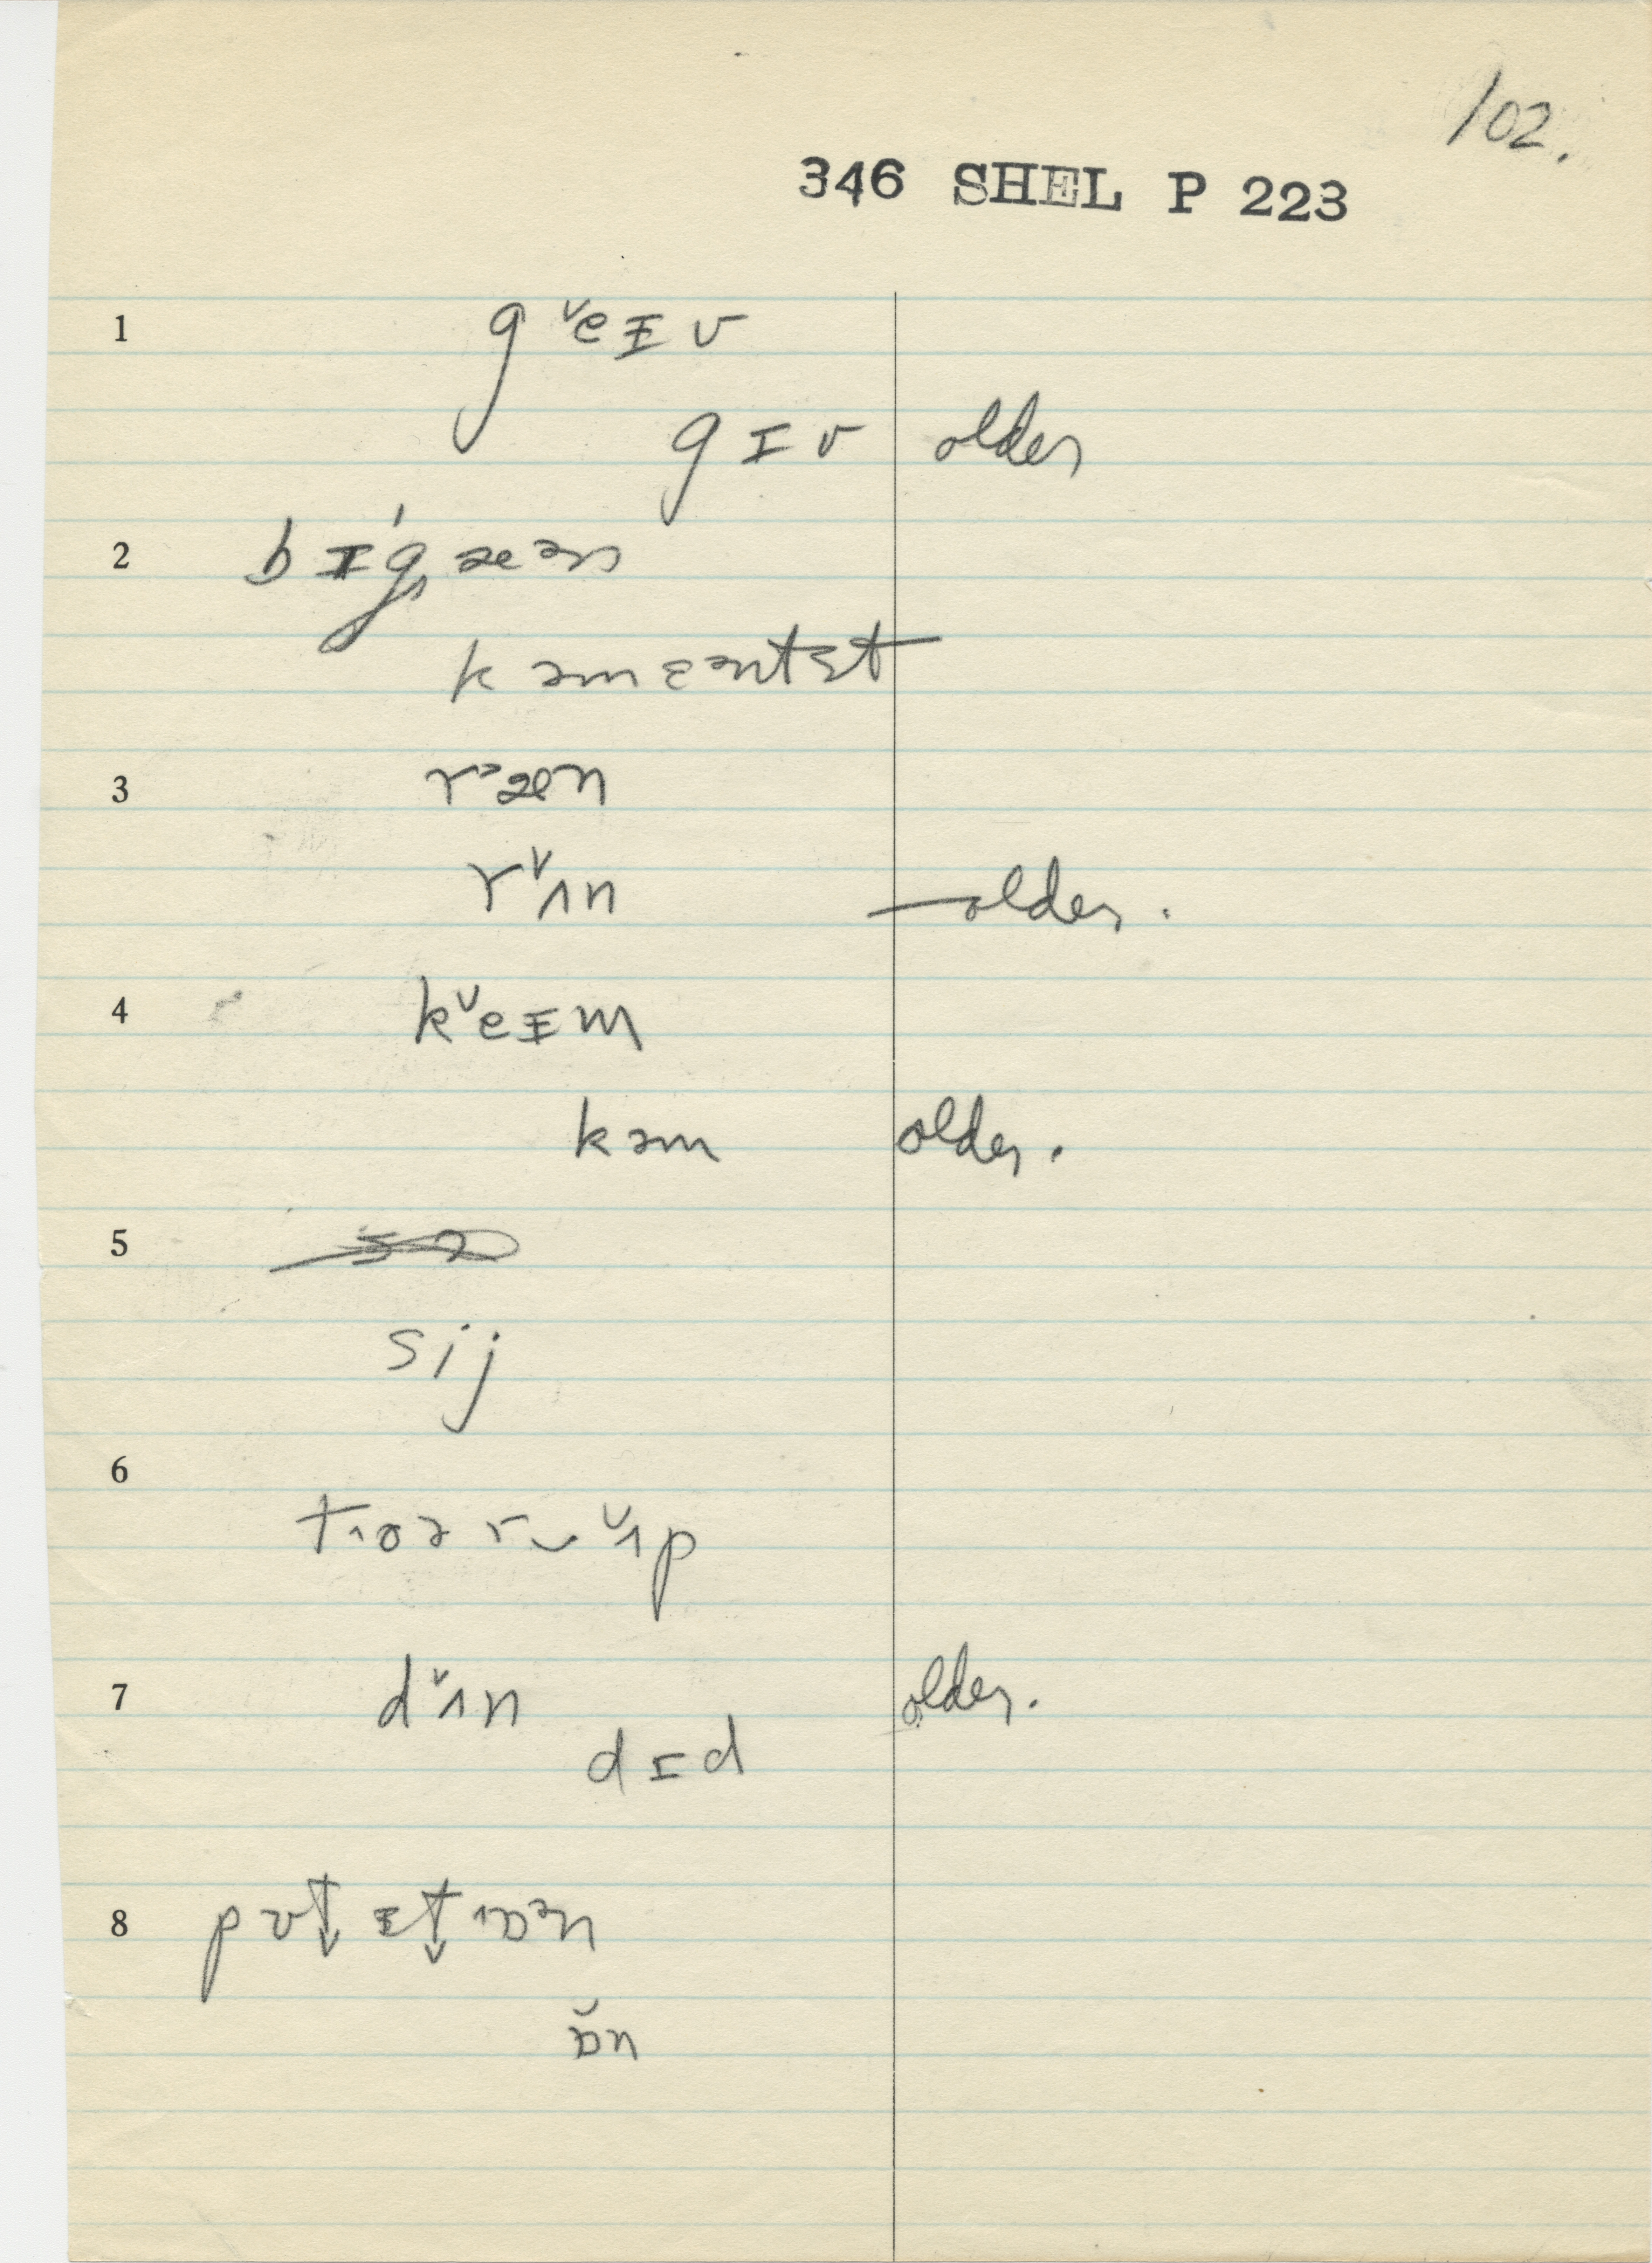 102.
346 SHEL P 223
1 g ˇeɪ v
gɪv older
2 bɪ́gæən
kəmɛəntɛt
3 r˃æn
rˇʌn — older.
4 kˇeɪm
kəm older.
5
sij
6
tʌoər‿ˇʌp
7 dˇʌn older.
dɪd
8 pʊt↓ ɪt↓ ʌɒən
ɒ̌n